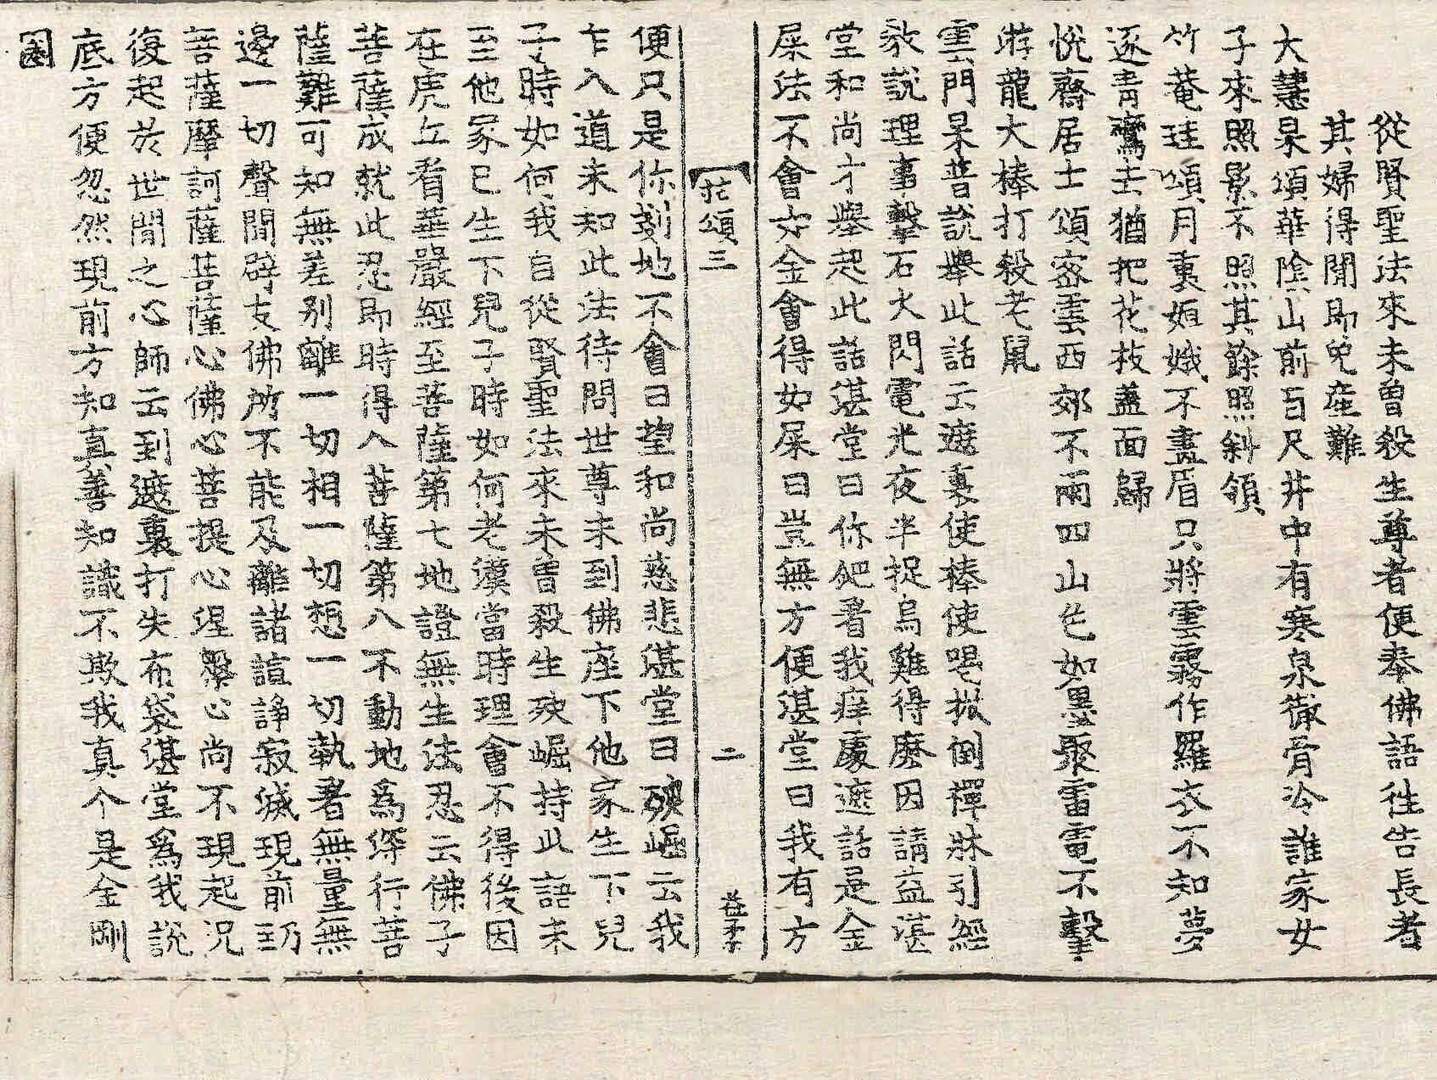 從賢聖法來未曾殺生尊者便奉佛語徃告長者
其婦得聞即免産難
大慧杲頌華隂山前百尺井中有寒泉徹骨冷誰家女
子來照影不照其餘照斜領
竹菴珪頌月裏姮娥不畫眉只將雲霧作羅衣不知夢
逐青鸞去猶把花枝盖面歸
悅齋居士頌密雲西郊不雨四山色如墨聚雷電不擊
遊龍大棒打殺老鼠
雲門杲普說擧此話云遮裏使棒使喝掀倒禪牀引經
敎說理事擊石火閃電光夜半捉烏雞得麽因請益湛
堂和尚才擧起此話湛堂曰你鈀著我痒處遮話是金
屎法不會如金會得如屎曰豈無方便湛堂曰我有方
花頌三
二
益秀
便只是你剗地不會曰望和尚慈悲湛堂曰殃崛云我
乍入道未知此法待問世尊未到佛座下他家生下兒
子時如何我自從賢聖法來未曾殺生殃崛持此語未
至他家已生下兒子時如何老漢當時理會不得後因
在虎丘看華嚴經至菩薩第七地證無生法忍云佛子
菩薩成就此忍即時得入菩薩第八不動地爲深行菩
薩難可知無差別離一切相一切想一切執著無量無
邊一切聲聞辟支佛所不能及離諸諠諍寂滅現前乃
菩薩摩訶薩菩薩心佛心菩提心涅槃心尚不現起况
復起於世間之心師云到遮裏打失布袋湛堂爲我說
底方便忽然現前方知真善知識不欺我真个是金剛
圈